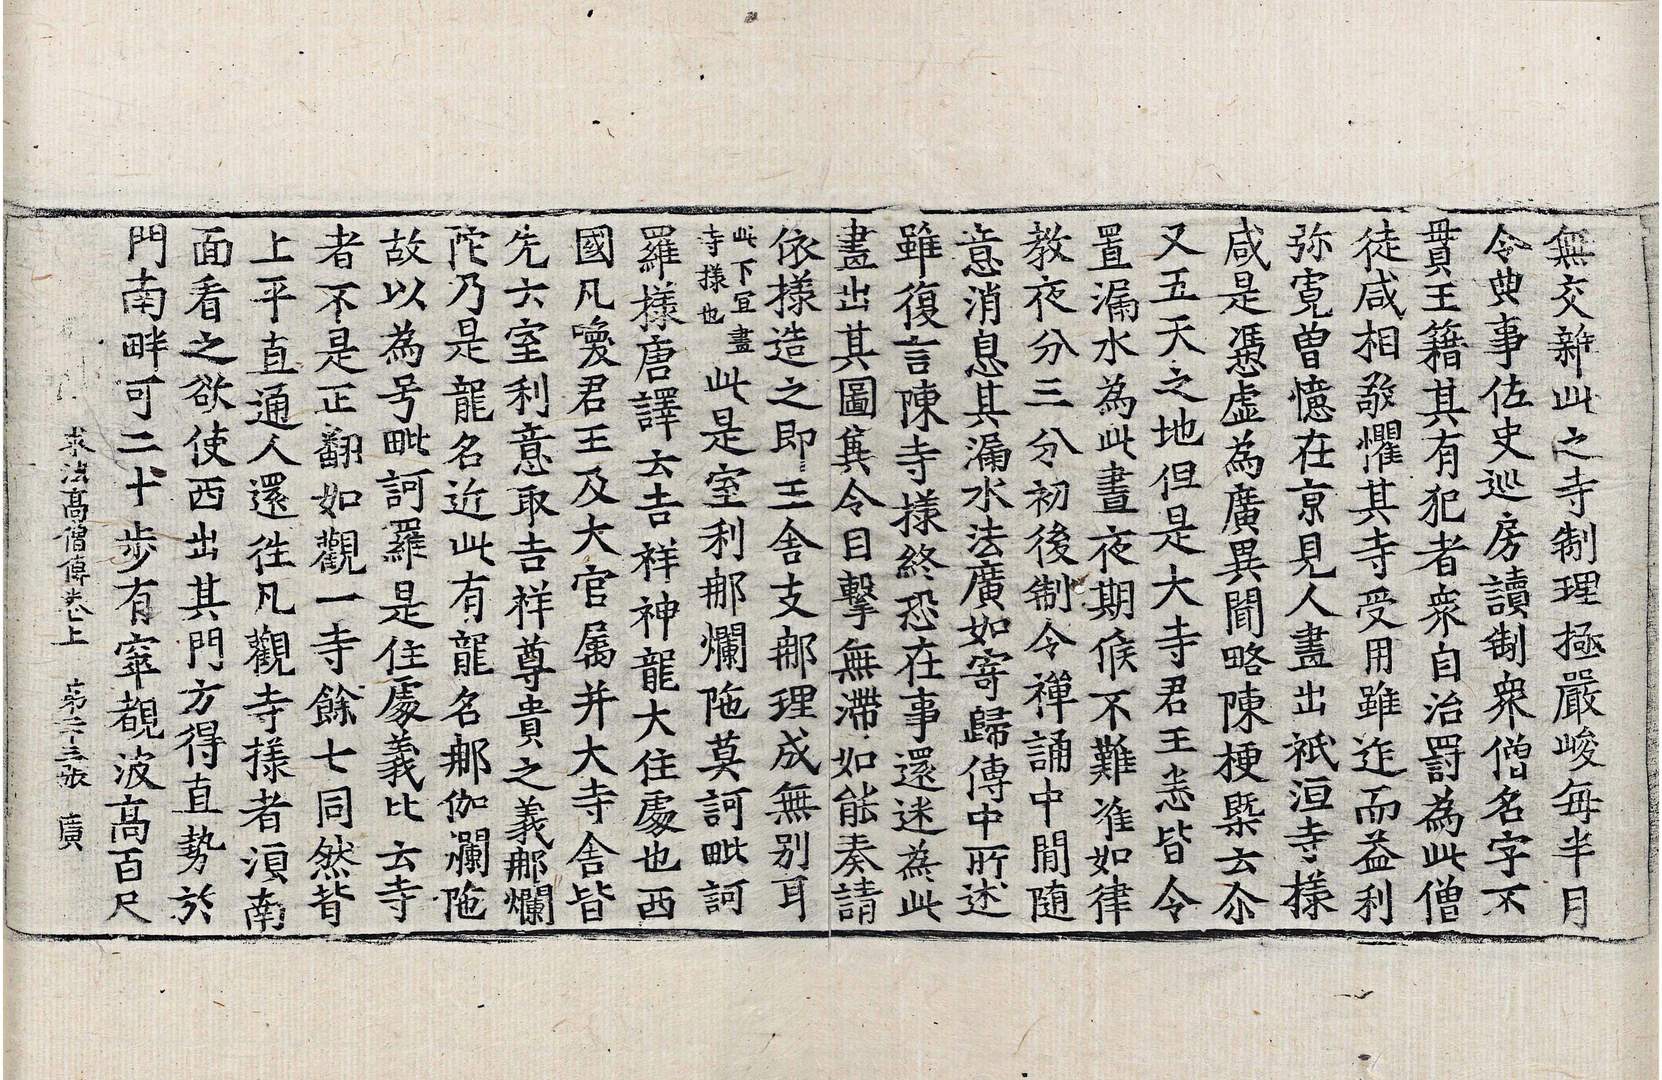 無交雜此之寺制理極嚴峻每半月
令典事佐史巡房讀制衆僧名字不
貫王籍其有犯者衆自治罸為此僧
徒咸相敬懼其寺受用雖迮而益利
弥寛曽憶在京見人畫出祇洹寺樣
咸是憑虚為廣異聞略陳梗槩云尒
又五天之地但是大寺君王悉皆令
置漏水為此晝夜期候不難准如律
教夜分三分初後制令禪誦中閒隨
意消息其漏水法廣如寄歸傳中所述
雖復言陳寺樣終恐在事還迷為此
畫出其圖兾令目擊無滯如能奏請
依樣造之即王舍支那理成無別耳
此下宜畫
寺樣也
此是室利那爛陁莫訶毗訶
羅樣唐譯云吉祥神龍大住處也西
國凡喚君王及大官属并大寺舍皆
先云室利意取吉祥尊貴之義那爛
陀乃是龍名近此有龍名那伽爛陁
故以為号毗訶羅是住處義比云寺
者不是正翻如觀一寺餘七同然背
上平直通人還徃凡觀寺樣者湏南
面看之欲使西出其門方得直勢於
門南畔可二十步有窣覩波高百尺
求法高僧傳卷上　第二十三張　廣